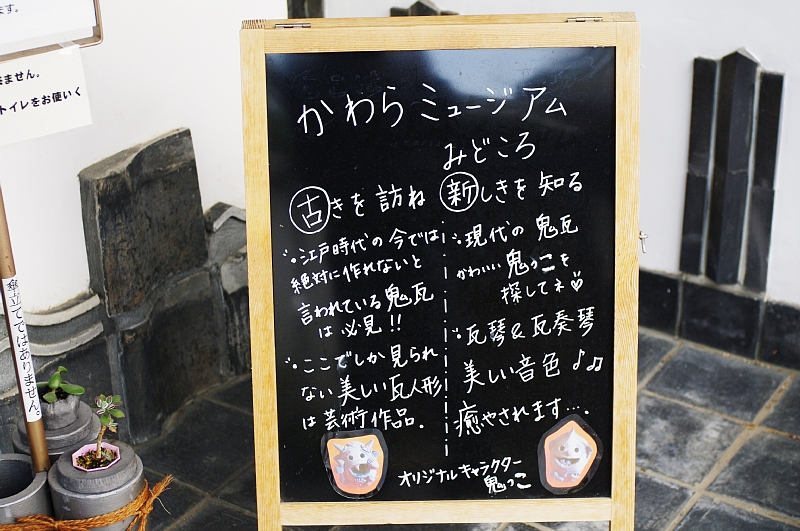 ます。
ません。
トイレをお使いく
傘立てではありません。
かわらミュージアム
みどころ
古きを訪ね
・江戸時代の今では
絶対に作れないと
言われている鬼瓦
は必見!!
・ここでしか見られ
ない美しい瓦人形
は芸術作品.
新しきを知る
・現代の鬼瓦
かわいい鬼っこを
探してネ♡
・瓦琴&瓦奏琴
美しい音色♪♫
癒やされます….
オリジナルキャラクター
鬼っこ